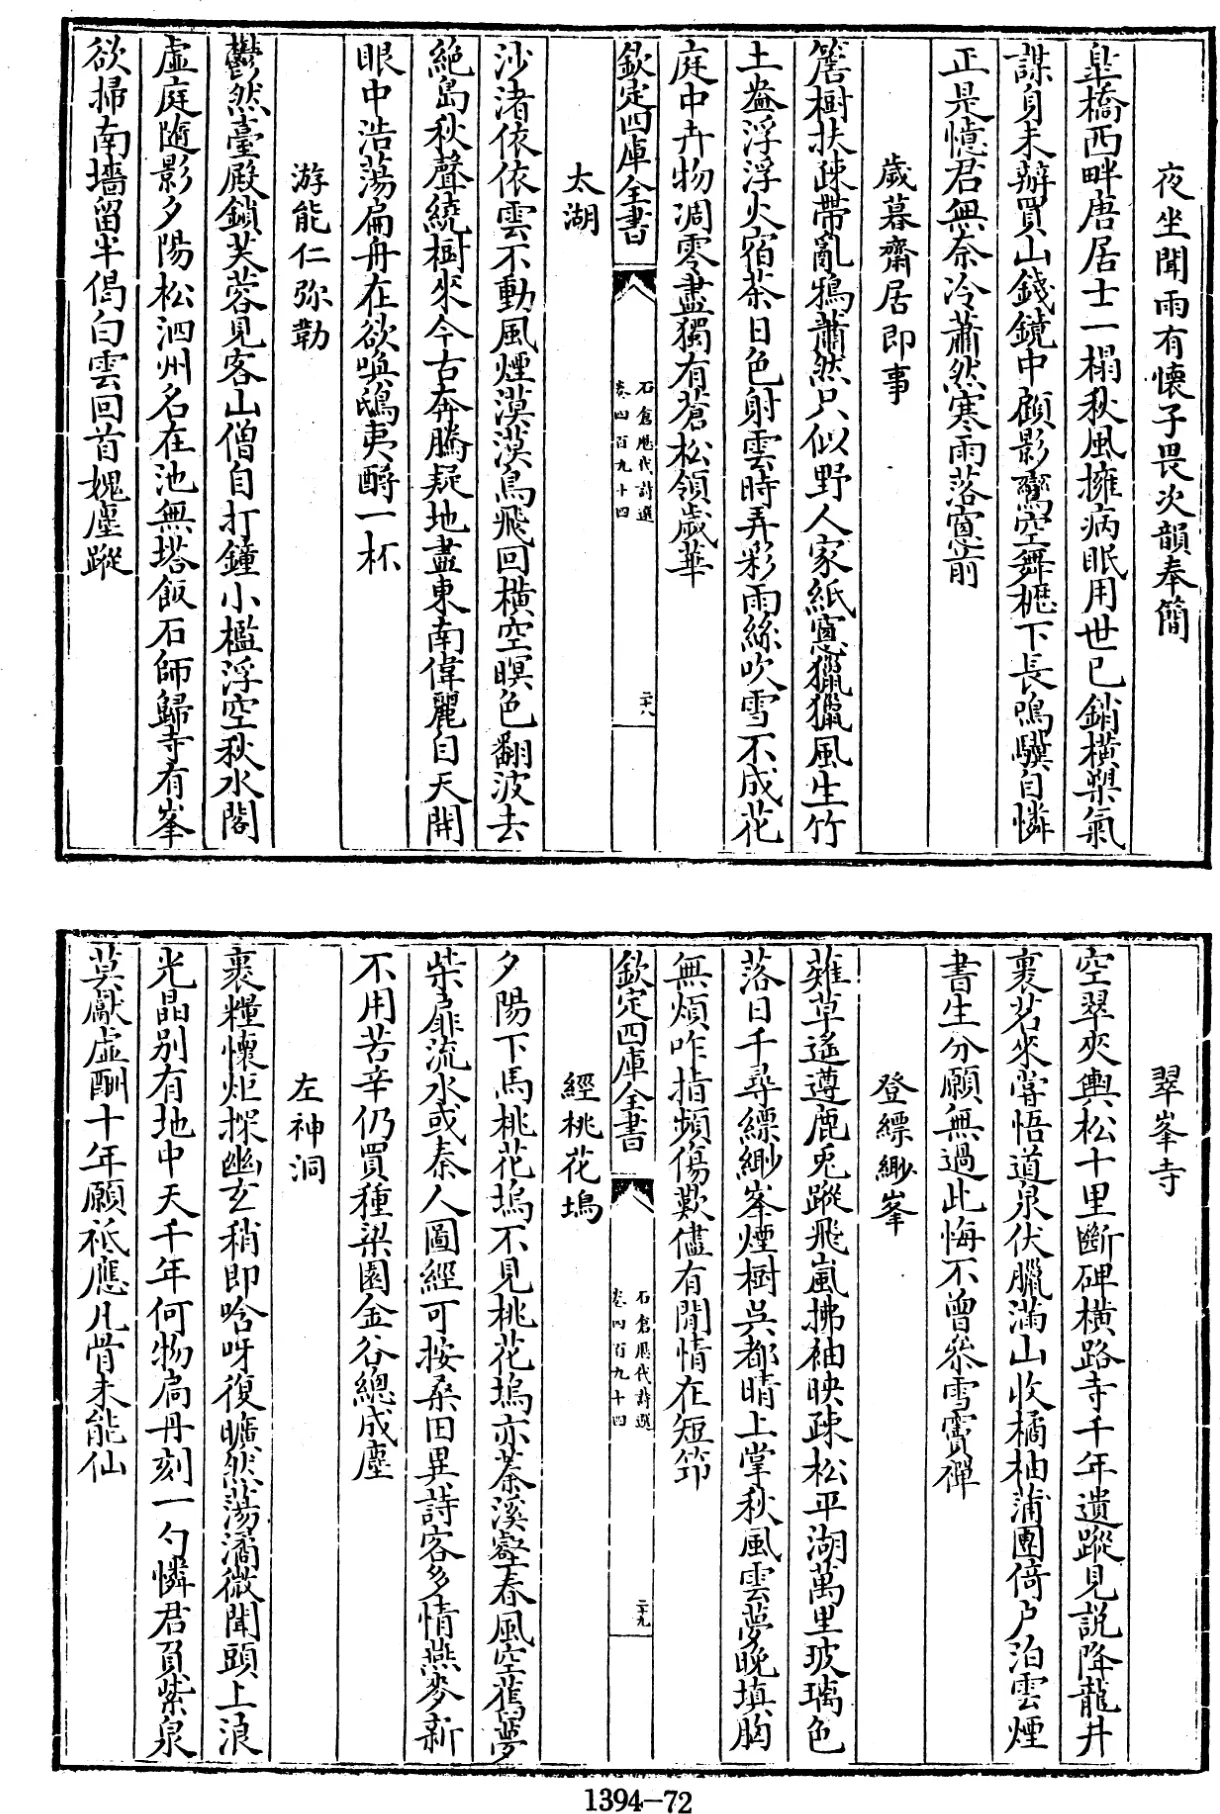 夜坐聞雨有懷子畏次韻奉簡
臯橋西畔唐居士一榻秋風擁病眠用世已銷橫槊氣
謀身未辦買山錢鏡中顧影鸞空舞櫪下長鳴驥自憐
正是憶君無奈冷蕭然寒雨落窻前
歲暮齋居即事
簷樹扶疎帶亂鴉蕭然只似野人家紙窻獵獵風生竹
土盎浮浮火宿茶日色射雲時弄彩雨絲吹雪不成花
庭中卉物凋零盡獨有蒼松領歲華
欽定四庫全書
石倉歷代詩選
卷四百九十四
二十八
太湖
沙渚依依雲不動風煙漠漠鳥飛回橫空暝色翻波去
絶島秋聲繞樹來今古奔騰疑地盡東南偉麗自天開
眼中浩蕩扁舟在欲喚鴟夷酹一杯
游能仁弥勒
鬱然臺殿鎖芙蓉見客山僧自打鐘小檻浮空秋水閣
虛庭隨影夕陽松泗州名在池無塔飯石師歸寺有峯
欲掃南墻留半偈白雲回首媿塵蹤
翠峯寺
空翠夾輿松十里斷碑橫路寺千年遺蹤見説降龍井
裹茗來嘗悟道泉伏臘滿山收橘柚蒲團倚户泊雲煙
書生分願無過此悔不曾叅雪竇禪
登縹緲峯
薙草遥遵鹿兎蹤飛嵐拂袖映疎松平湖萬里玻瓈色
落日千尋縹緲峯煙樹吳都晴上掌秋風雲夢晚填胸
無煩咋指頻傷歎儘有閒情在短笻
欽定四庫全書
石倉歷代詩選
卷四百九十四
二十九
經桃花塢
夕陽下馬桃花塢不見桃花塢亦蓁溪壑春風空舊夢
柴扉流水或秦人圖經可按桑田異詩客多情燕麥新
不用苦辛仍買種梁園金谷總成塵
左神洞
裹糧懷炬探幽玄稍即唅呀復曠然蕩潏微聞頭上浪
光晶别有地中天千年何物扃丹刻一勺憐君負紫泉
莫厭虛酬十年願祗應凡骨未能仙
1394-72